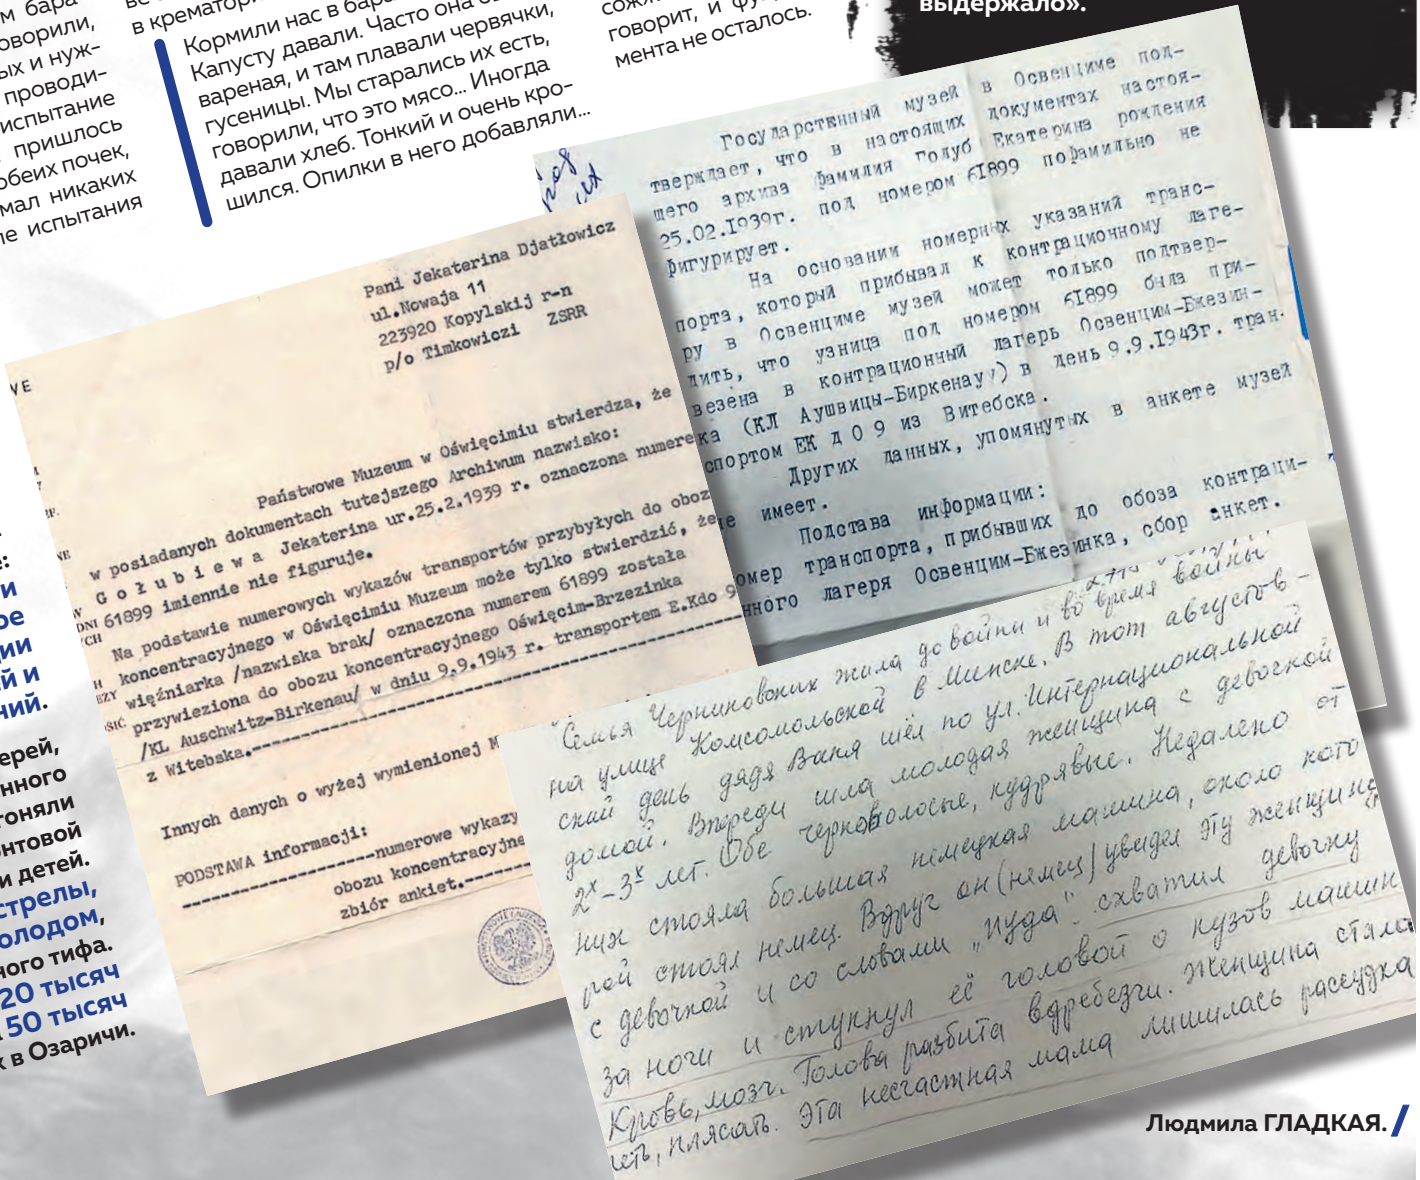 м бара-
оворили,
ых и нуж-
проводи-
испытание
пришлось
обеих почек,
мал никаких
ле испытания
в крематори
Кормили нас в бара
Капусту давали. Часто она б
вареная, и там плавали червячки,
гусеницы. Мы старались их есть,
говорили, что это мясо... Иногда
давали хлеб. Тонкий и очень кро-
шился. Опилки в него добавляли...
говорит, и фу
мента не осталось.
выдержало».
Государственный музей в Освенциме под-
тверждает, что в настоящих документах настоя-
щего архива фамилия Голуб Екатерина рождения
25.02.1939г. под номером 61899 пофамильно не
фигурирует.
На основании номерных указаний транс-
порта, который прибывал к контрационному лаге-
ру в Освенциме музей может только подтвер-
дить, что узница под номером 61899 была при-
везена в контрационный лагерь Освенцим-Бжезин-
ка (КЛ Аушвицы-Биркенау/) в день 9.9.1943г. тран-
спортом ЕК Д О 9 из Витебска.
Других данных, упомянутых в анкете музей
не имеет.
Подстава информации:
омер транспорта, прибывших до обоза контраци-
нного лагеря Освенцим-Бжезинка, сбор анкет.
WE
Pani Jekaterina Djatkowicz
ul.Nowaja 11
223920 Kopylskij r-n
p/o Timkowiczi ZSRR
Państwowe Muzeum w Oświęcimiu stwierdza, że
w posiadanych dokumentach tutejszego Archiwum nazwisko:
G o ł u b i e w a Jekaterina ur.25.2.1939 r. oznaczona numere
61899 imiennie nie figuruje.
Na podstawie numerowych wykazów transportów przybyłych do oboz
koncentracyjnego w Oświęcimiu Muzeum może tylko stwierdzić, że
więźniarka /nazwiska brak/ oznaczona numerem 61899 została
przywieziona do obozu koncentracyjnego Oświęcim-Brzezinka
/KL Auschwitz-Birkenau/ w dniu 9.9.1943 r. transportem E.Kdo 9
z Witebska.
Innych danych o wyżej wymienionej M
PODSTAWA informacji:
numerowe wykazy
obozu koncentracyjne
zbiór ankiet.
Семья Черниковских жила до войны и во время войны
на улице Комсомольской в Минске. В тот августов-
ский день дядя Ваня шёл по ул. Интернациональной
домой. Впереди шла молодая женщина с девочкой
2х-3х лет. Обе черноволосые, кудрявые. Недалеко от
них стояла большая немецкая машина, около кото
рой стоял немец. Вдруг он (немец) увидел эту женщину
с девочкой и со словами „Иуда". схватил девочку
за ноги и стукнул её головой о кузов машин
Кровь, мозг. Голова разбита вдребезги. Женщина стала
петь, плясать. Эта несчастная мама лишилась рассудка
е:
и
ое
ции
й и
ний.
ерей,
нного
гоняли
нтовой
и детей.
стрелы,
олодом,
ного тифа.
20 тысяч
50 тысяч
х в Озаричи.
Людмила ГЛАДКАЯ.